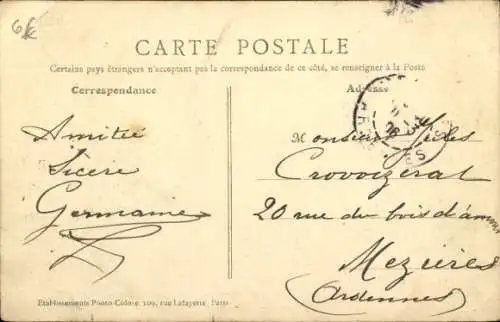 6f
CARTE POSTALE
Certains pays étrangers n'acceptant pas la correspondance de ce côté, se renseigner à la Poste
Correspondance
Adresse
Amitié
Sicere
Germaine
Monsieur Jules
Crovoizerat
20 rue du bois d'amour
Mezières
(Ardennes)
Etablissements Photo-Colore, 109, rue Lafayette, Paris